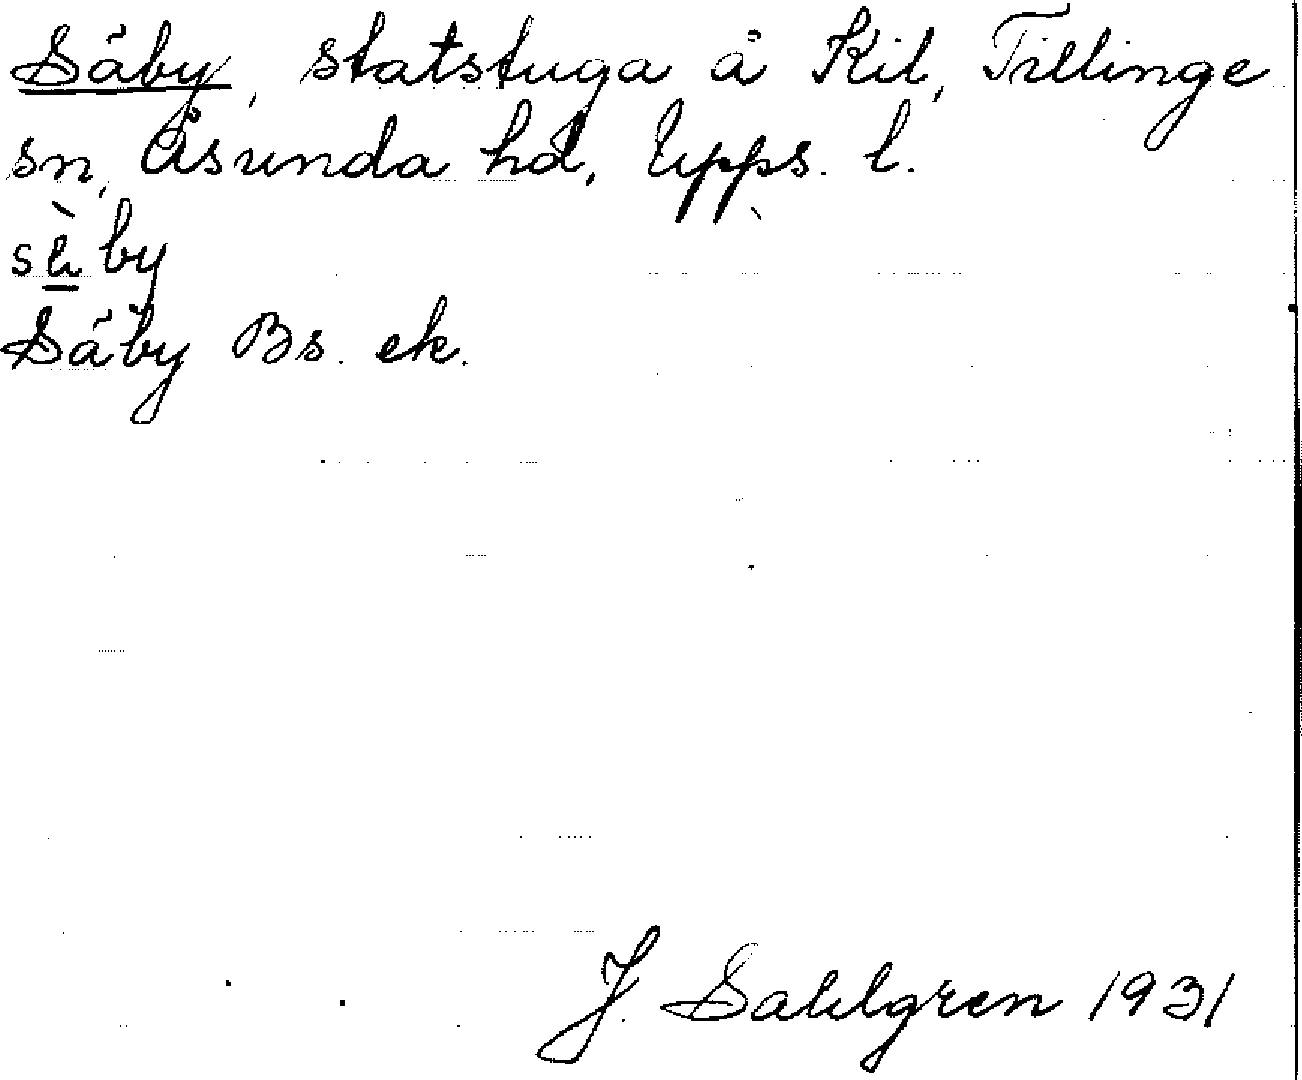 Säby, statstuga å Kil, Tillinge
sn, Åsunda hd, Upps. l.
by
Säby Bs. ek.
J. Sahlgren 1931